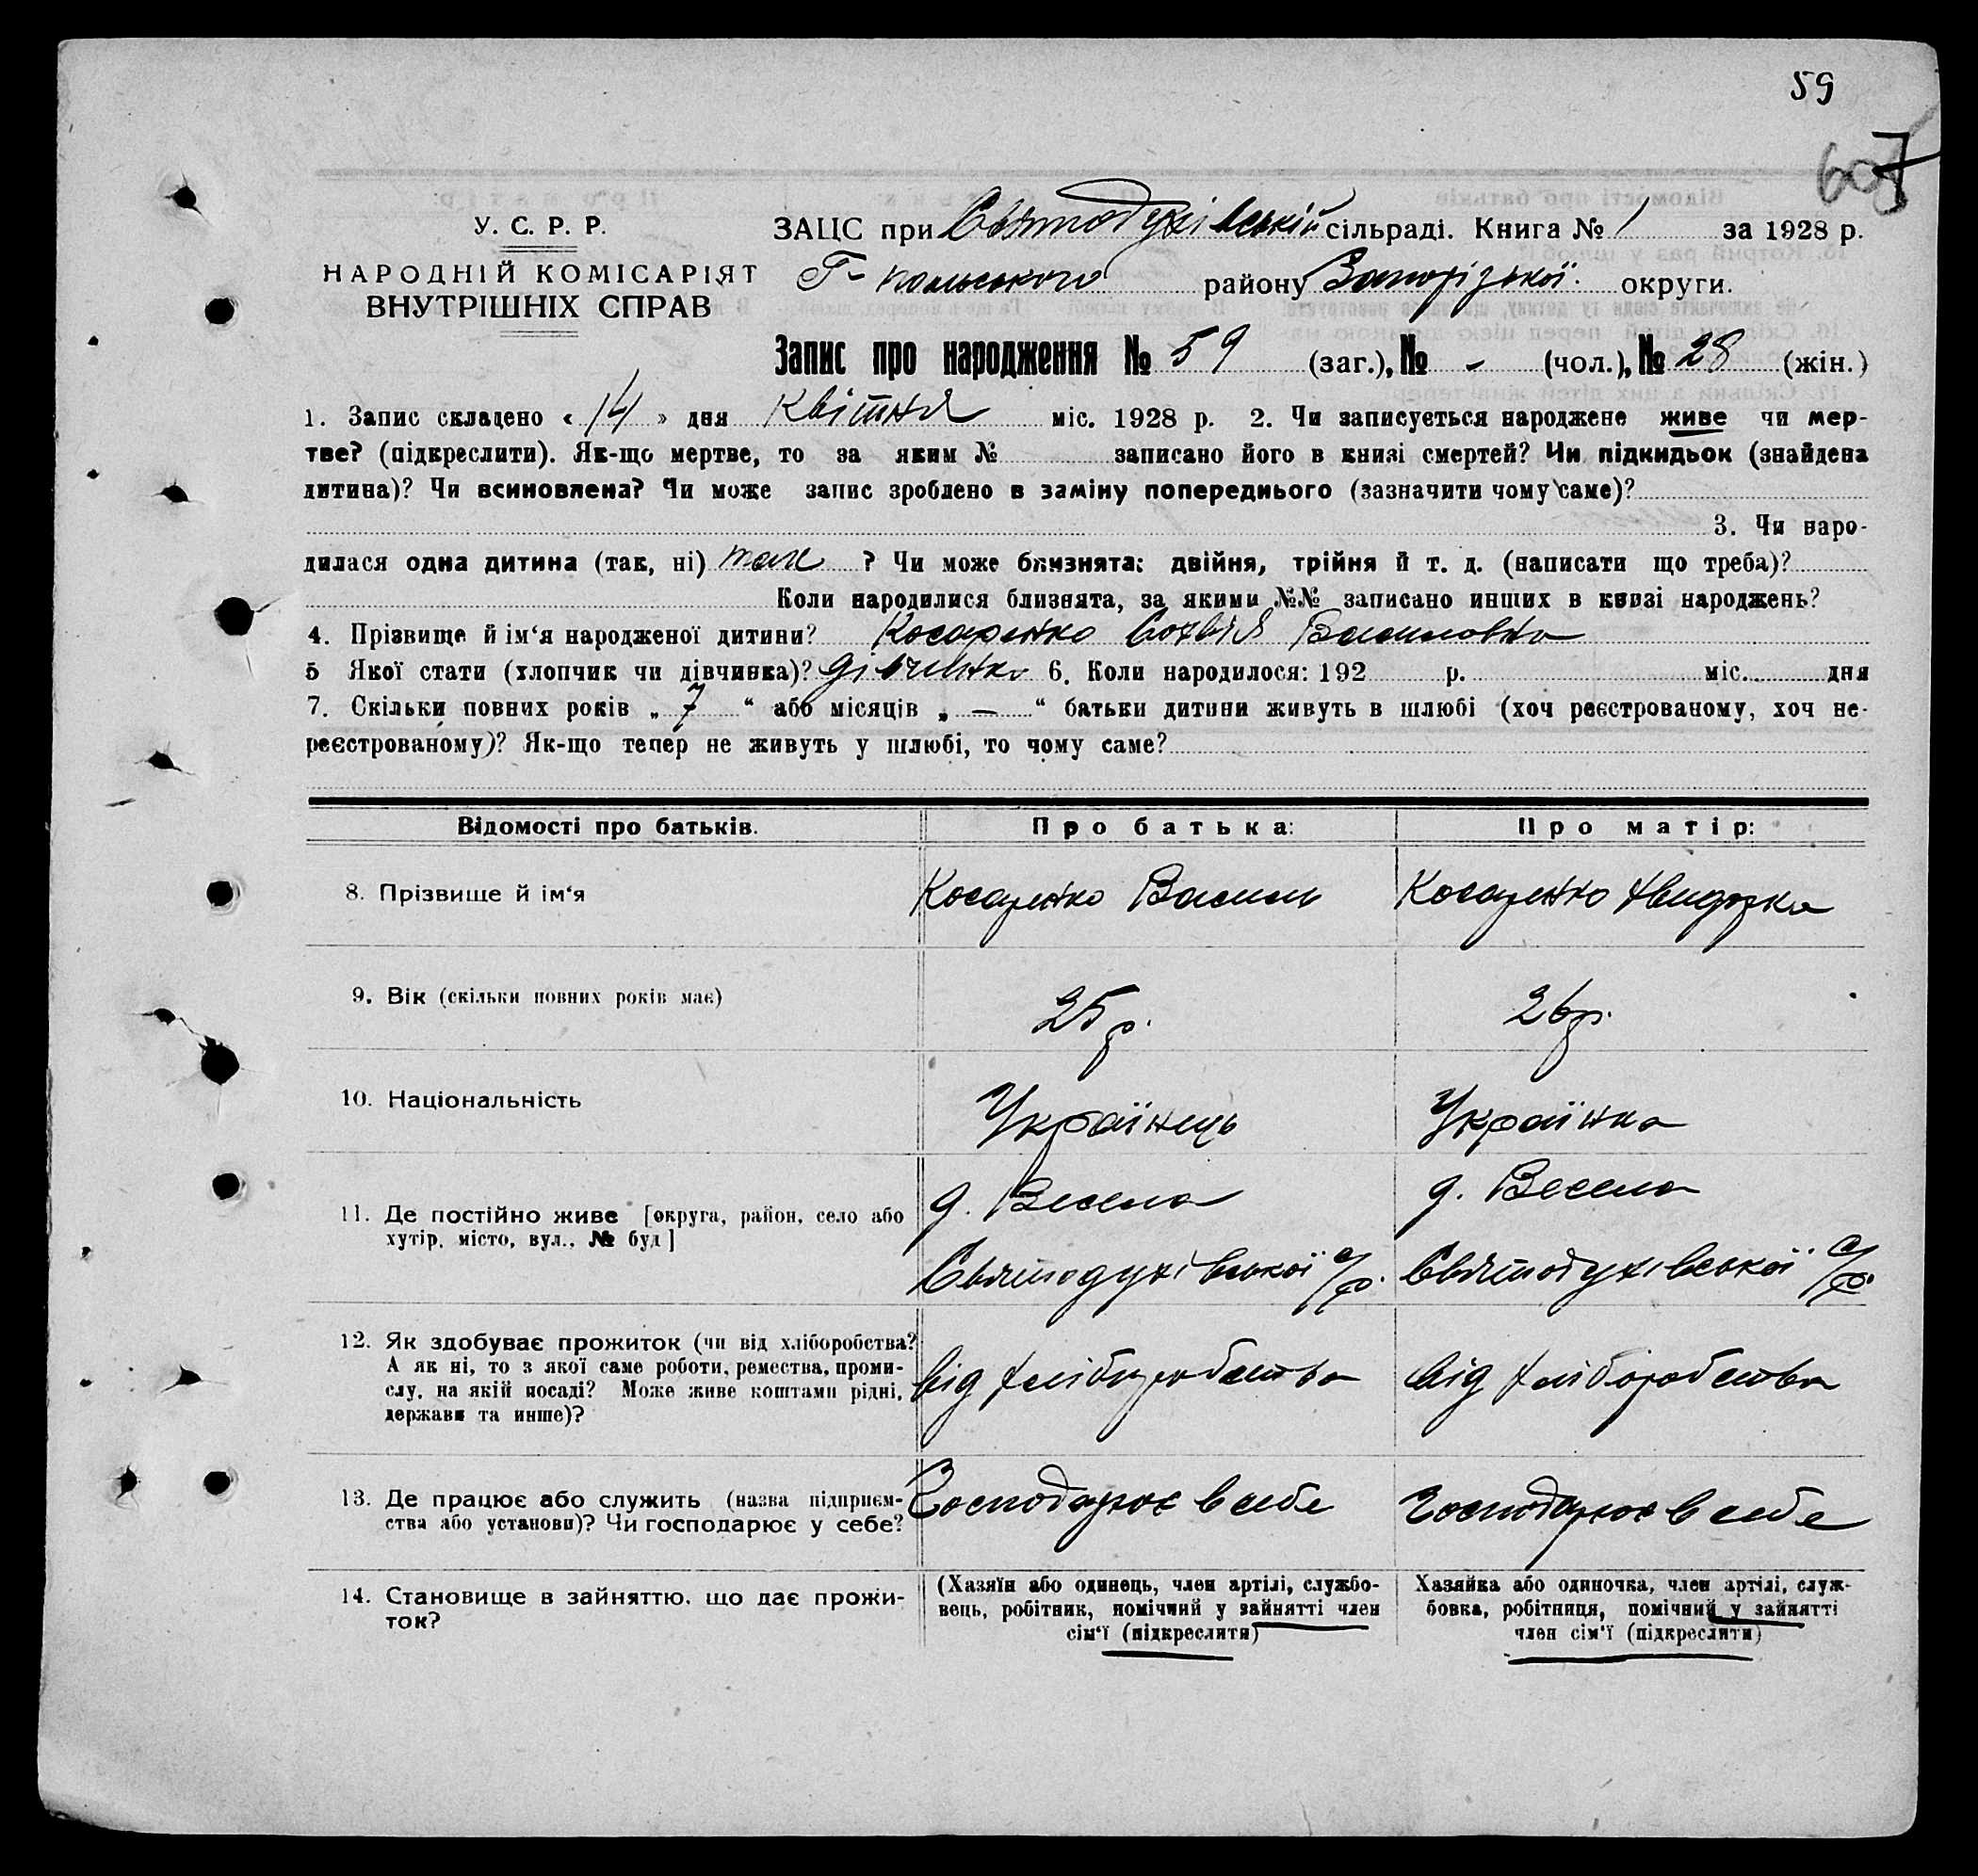 59
607
У. С. Р. Р.
НАРОДНІЙ КОМІСАРІЯТ
ВНУТРІШНІХ СПРАВ
ЗАЦС при Святодухівській сільраді. Книга № 1 за 1928 р.
Г-польського району Запорізької округи.
Запис про народження № 59 (заг.), № - (чол.), № 28 (жін.)
1. Запис складено « 14 » дня Квітня міс. 1928 р. 2. Чи записується народжене живе чи мер-
тве? (підкреслити). Як-що мертве, то за яким № записано його в книзі смертей? Чи підкидьок (знайдена
дитина)? Чи всиновлена? Чи може запис зроблено в заміну попереднього (зазначити чому саме)?
3. Чи наро-
дилася одна дитина (так, ні) так ? Чи може близнята: двійня, трійня й т. д. (написати що треба)?
Коли народилися близнята, за якими №№ записано инших в книзі народжень?
4. Прізвище й ім‘я народженої дитини? Косаренко Софія Василовна
5 Якої стати (хлопчик чи дівчинка)? дівчинка 6. Коли народилося: 192 р. міс. дня
7. Скільки повних років „ 7 “ або місяців „ — “ батьки дитини живуть в шлюбі (хоч реєстрованому, хоч не-
реєстрованому)? Як-що тепер не живуть у шлюбі, то чому саме?
Відомості про батьків. Про батька: Про матір:
8. Прізвище й ім‘я Косаренко Василь Косаренко Явидрка
9. Вік (скільки повних років має) 25 р. 26 р.
10. Національність Українець Українка
11. Де постійно живе [округа, район, село або д. Весела д. Весела
хутір, місто, вул., № буд] Святодухівської с/р. Святодухівської с/р.
12. Як здобуває прожиток (чи від хліборобства?
А як ні, то з якої саме роботи, ремества, проми- від хліборобства від хліборобства
слу, на якій посаді? Може живе коштами рідні,
держави та инше)?
13. Де працює або служить (назва підприєм- Господарює в себе Господарює в себе
ства або установи)? Чи господарює у себе?
14. Становище в зайняттю, що дає прожи- (Хазяїн або одинець, член артілі, службо- Хазяйка або одиночка, член артілі, служ-
ток? вець, робітник, помічний у зайнятті член бовка, робітниця, помічний у зайнятті
сім‘ї (підкреслити) член сім‘ї (підкреслити)